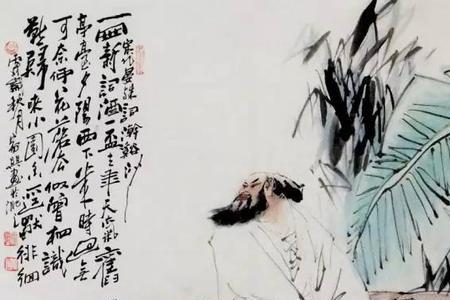 宋代晏殊詞澣谿沙
一曲新詞酒一盃去年天氣舊
亭臺夕陽西下幾時回無
可奈何花落去似曾相識
燕歸來小園香逕獨徘徊